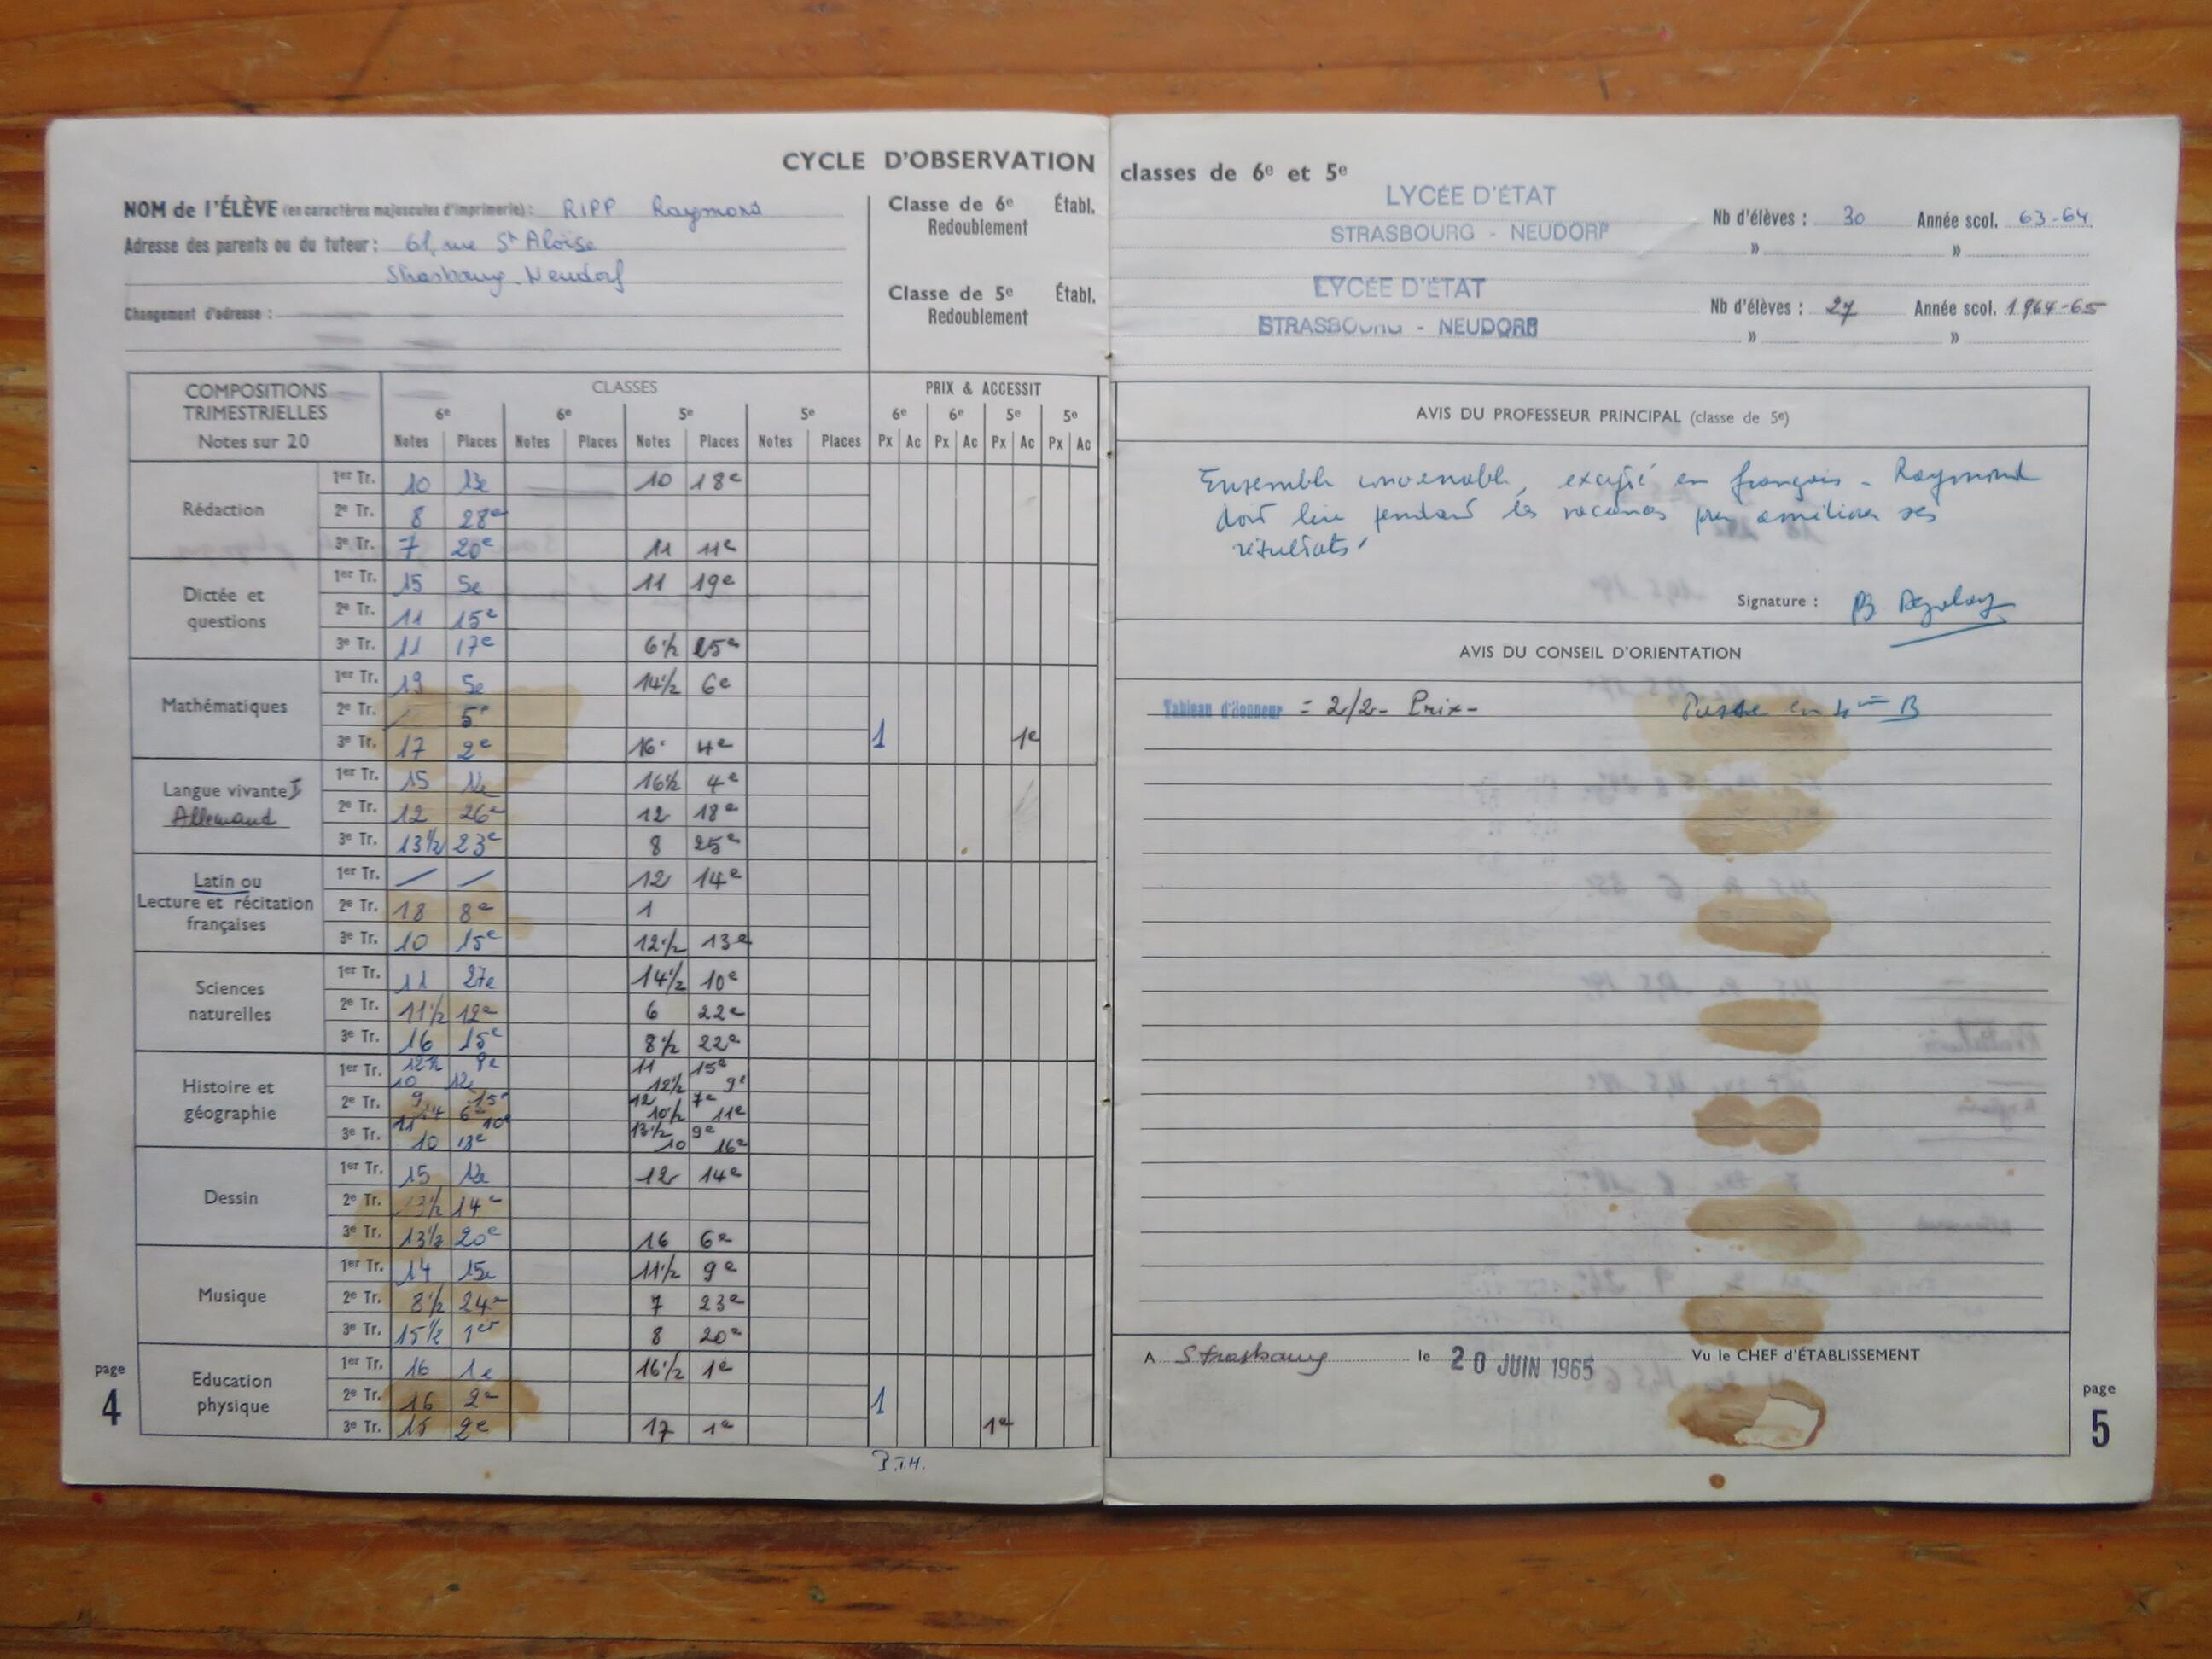 CYCLE D'OBSERVATION classes de 6e et 5e
NOM de l'ÉLÈVE (en caractères majuscules d'imprimerie) : RIPP Raymond
Adresse des parents ou du tuteur : 61, rue St Aloïse
Strasbourg-Neudorf
Changement d'adresse :
Classe de 6e Établ.
Redoublement
Classe de 5e Établ.
Redoublement
LYCÉE D'ÉTAT
STRASBOURG - NEUDORF
Nb d'élèves : 30 Année scol. 63-64
» »
LYCÉE D'ÉTAT
STRASBOURG - NEUDORF
Nb d'élèves : 27 Année scol. 1964-65
» »
COMPOSITIONS TRIMESTRIELLES
Notes sur 20
CLASSES
6e 6e 5e 5e
Notes Places Notes Places Notes Places Notes Places
PRIX & ACCESSIT
6e 6e 5e 5e
Px Ac Px Ac Px Ac Px Ac
Rédaction
1er Tr. 10 13e 10 18e
2e Tr. 8 28e
3e Tr. 7 20e 11 11e
Dictée et questions
1er Tr. 15 5e 11 19e
2e Tr. 11 15e
3e Tr. 11 17e 6½ 25e
Mathématiques
1er Tr. 19 5e 14½ 6e
2e Tr. 5e
3e Tr. 17 2e 16 4e 1 1e
Langue vivante I
Allemand
1er Tr. 15 16½ 4e
2e Tr. 12 26e 12 18e
3e Tr. 13½ 23e 8 25e
Latin ou
Lecture et récitation françaises
1er Tr. / / 12 14e
2e Tr. 18 8e 1
3e Tr. 10 15e 12½ 13e
Sciences naturelles
1er Tr. 11 27e 14½ 10e
2e Tr. 11½ 12e 6 22e
3e Tr. 16 15e 8½ 22e
Histoire et géographie
1er Tr. 12½ 8e 11 15e
10 12e 12½ 9e
2e Tr. 9 15e 12 7e
14 6e 10½ 11e
3e Tr. 11 10e 13½ 9e
10 13e 10 16e
Dessin
1er Tr. 15 12 14e
2e Tr. 13½ 14e
3e Tr. 13½ 20e 16 6e
Musique
1er Tr. 14 15e 11½ 9e
2e Tr. 8½ 24e 7 23e
3e Tr. 15½ 1er 8 20e
Education physique
1er Tr. 16 1e 16½ 1e
2e Tr. 16 2e 1
3e Tr. 15 2e 17 1e 1e
page
4
AVIS DU PROFESSEUR PRINCIPAL (classe de 5e)
Ensemble convenable, excepté en français - Raymond
doit lire pendant les vacances pour améliorer ses
résultats.
Signature :
AVIS DU CONSEIL D'ORIENTATION
Tableau d'Honneur = 2/2 - Prix - Passe en 4ème B
A Strasbourg le 20 JUIN 1965 Vu le CHEF d'ÉTABLISSEMENT
page
5